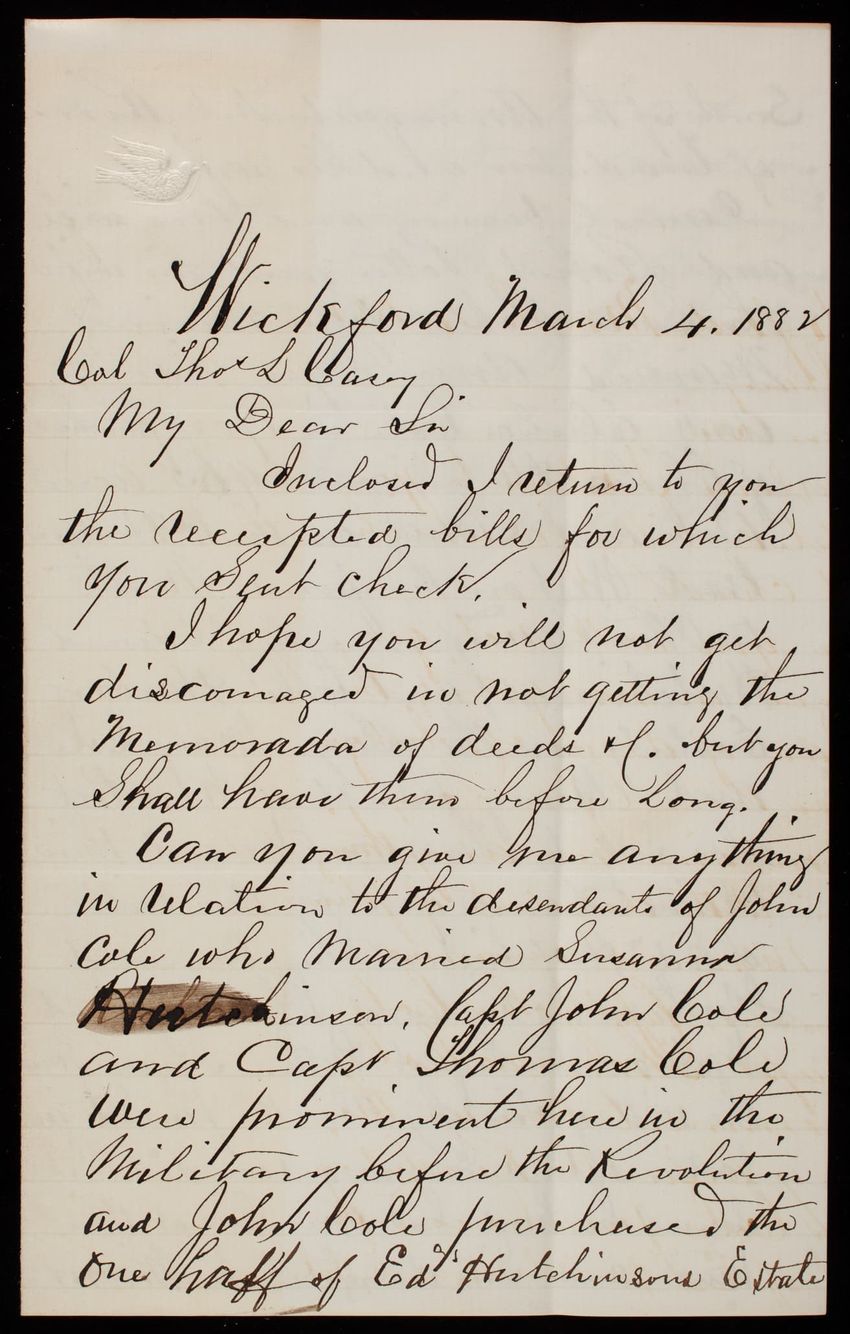 Wickford March 4. 1882
Col Thos L Casey
My Dear Sir
Inclosed I return to you
the receipted bills for which
you Sent check.
I hope you will not get
discouraged in not getting the
Memorada of deeds &c. but you
Shall have them before Long.
Can you give me any thing
in relation to the desendants of John
Cole who Married Susanna
Hutchinson. Capt John Cole
and Capt Thomas Cole
were prominent here in the
Military before the Revolution
and John Cole purchased the
One half of Edds Hutchinsons Estate